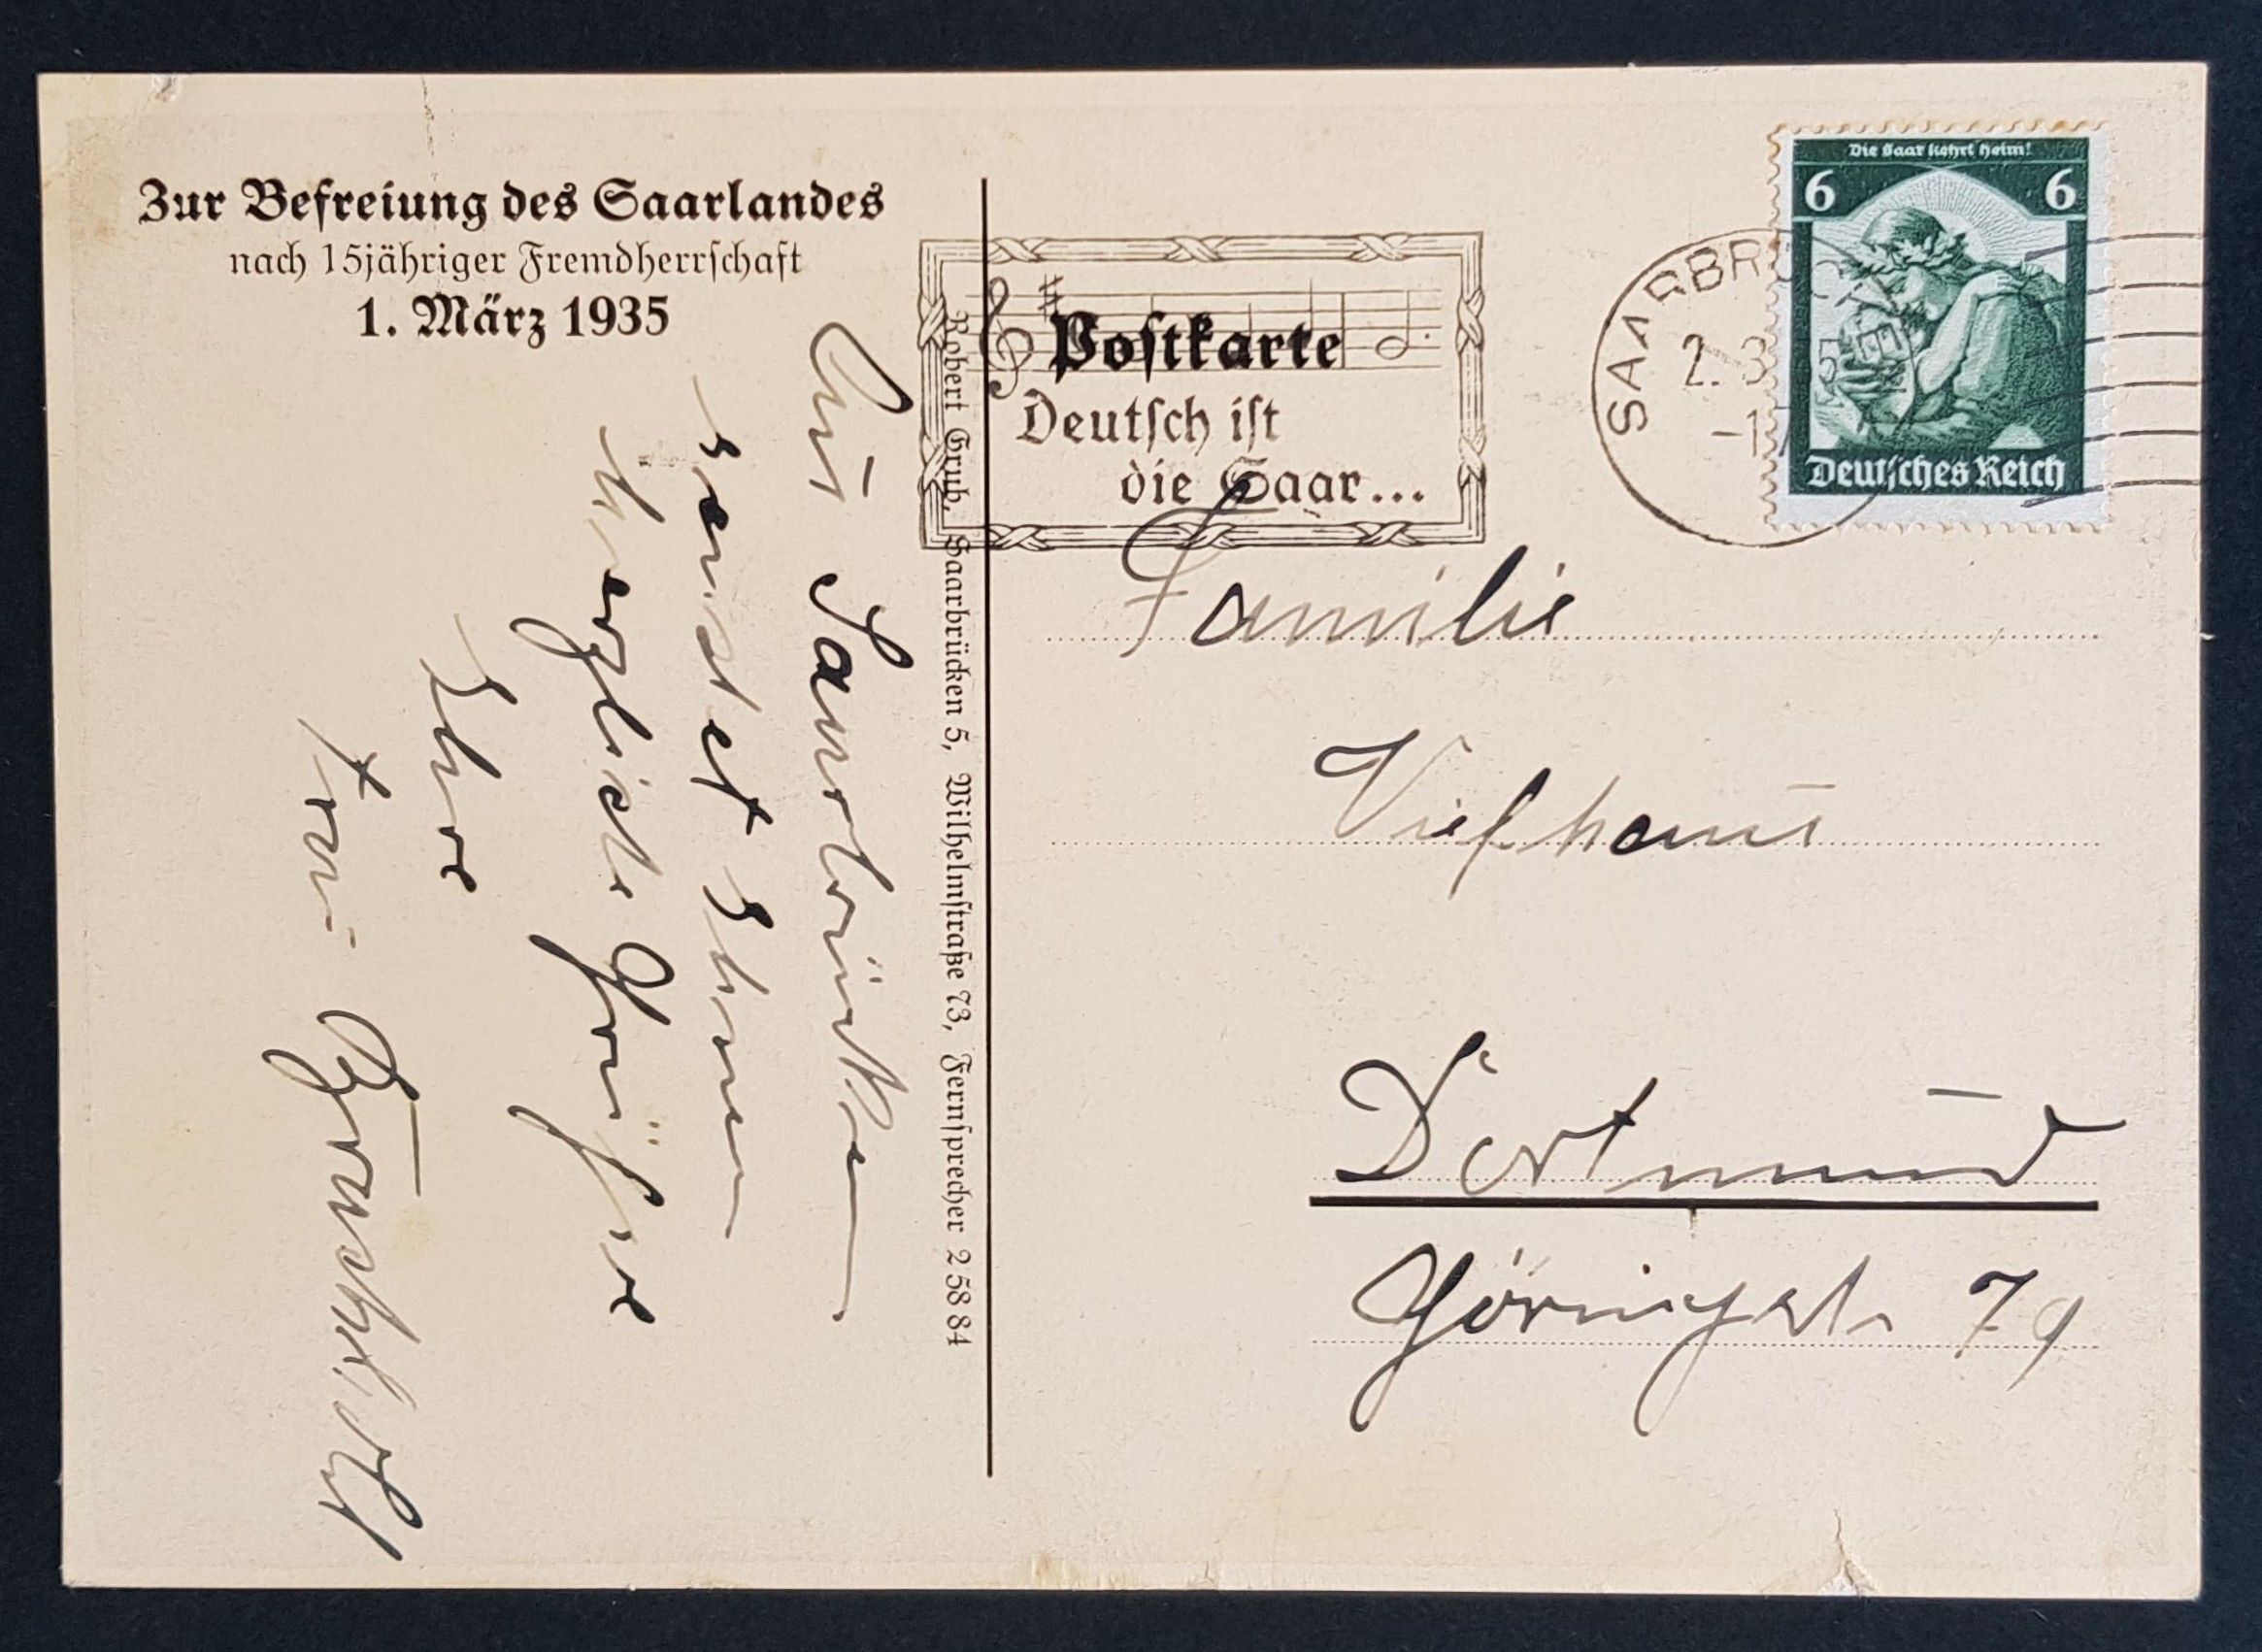 Zur Befreiung des Saarlandes
nach 15jähriger Fremdherrschaft
1. März 1935
Aus Saarbrücken
sendet Ihnen
herzliche Grüße
Ihre
Frau
Robert Grub, Saarbrücken 5, Wilhelmstraße 73, Fernsprecher 25884
Postkarte
Deutsch ist
die Saar...
SAARBRÜCK
2. 3. 5
-17
Die Saar kehrt heim!
6 6
Deutsches Reich
Familie
Viefhaus
Dortmund
79